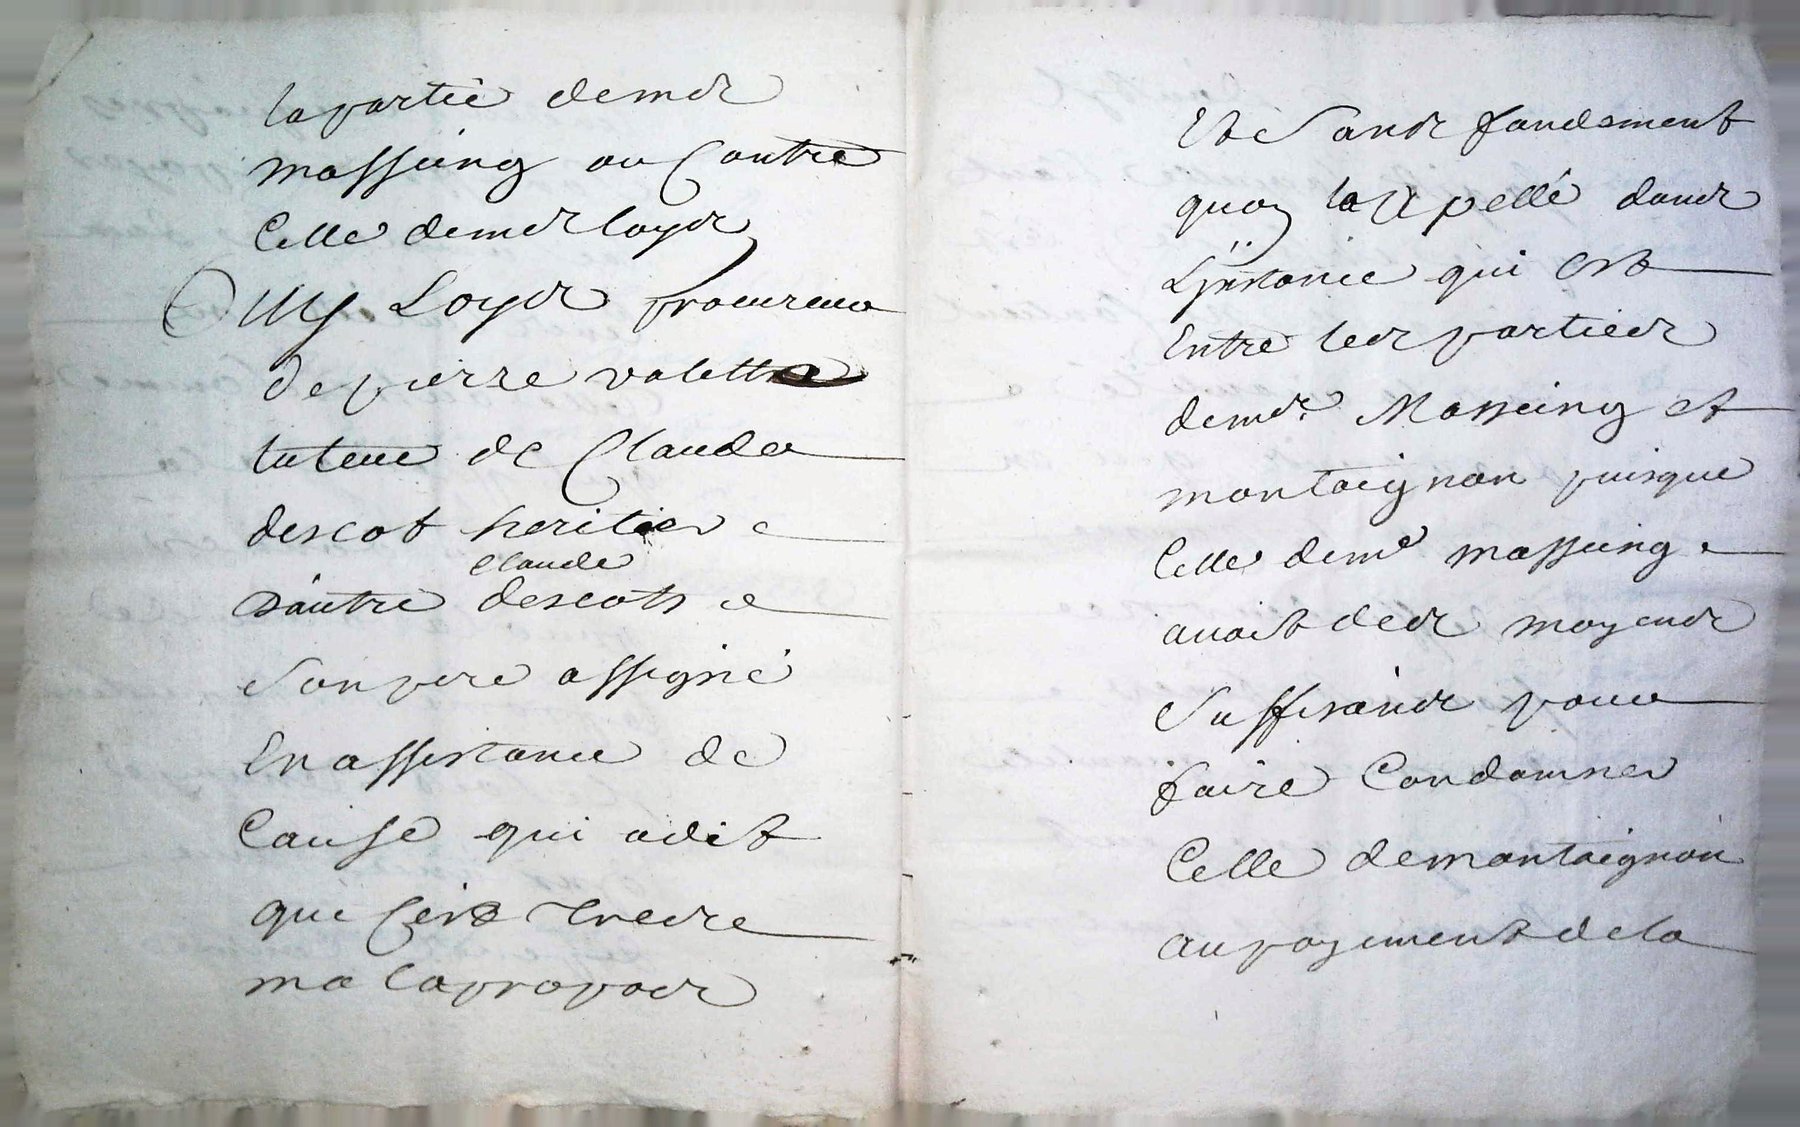 la partie de mr
massuing ou Contre
Celle de mr loyer
Me Loyer procureur
de pierre valette
tuteur de Claude
descot heritier
claude
d'autre descots
Son pere assigné
En assistance de
Cause qui a dit
que C'est
mal a propos
Et Sans fondement
quoy la apellé dans
L'jnstance qui Est
Entre les parties
de mr. Massuing et
montaignon puisque
Celle de me massuing
avoit des moyens
Suffisans pour
faire Condamner
Celle de montaignon
au payement de la